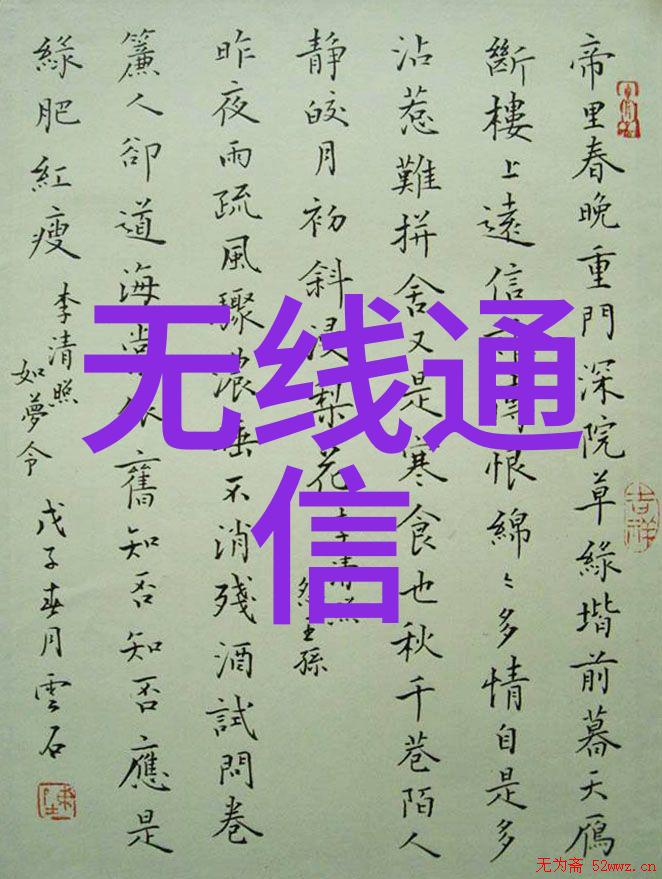 帝里春晚重門深院草緑堦前暮天鴈
斷樓上遠信恨綿〻多情自是多
沾惹難拼舍又是寒食也秋千巷陌人
靜皎月初斜浸梨花
李清照
怨王孫
昨夜雨疏風驟濃睡不消殘酒試問卷
簾人卻道海棠依舊知否知否應是
緑肥紅瘦
李清照
如夢令
戊子春月雲石
吉祥
无线通
信
无为斋 52wwz.cn